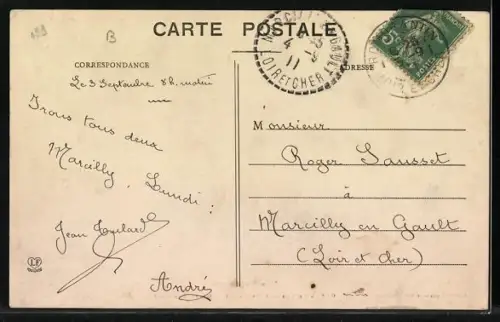 199
B
CARTE POSTALE
MARCILLY
GAULT
4 -9
11
LOIR ET CHER
5
CORRESPONDANCE
ADRESSE
Le 3 Septembre 8h. matin
Irons tous deux
Marcilly, Lundi.
Jean
André
Monsieur
Roger Sausset
à
Marcilly en Gault
(Loir et Cher)